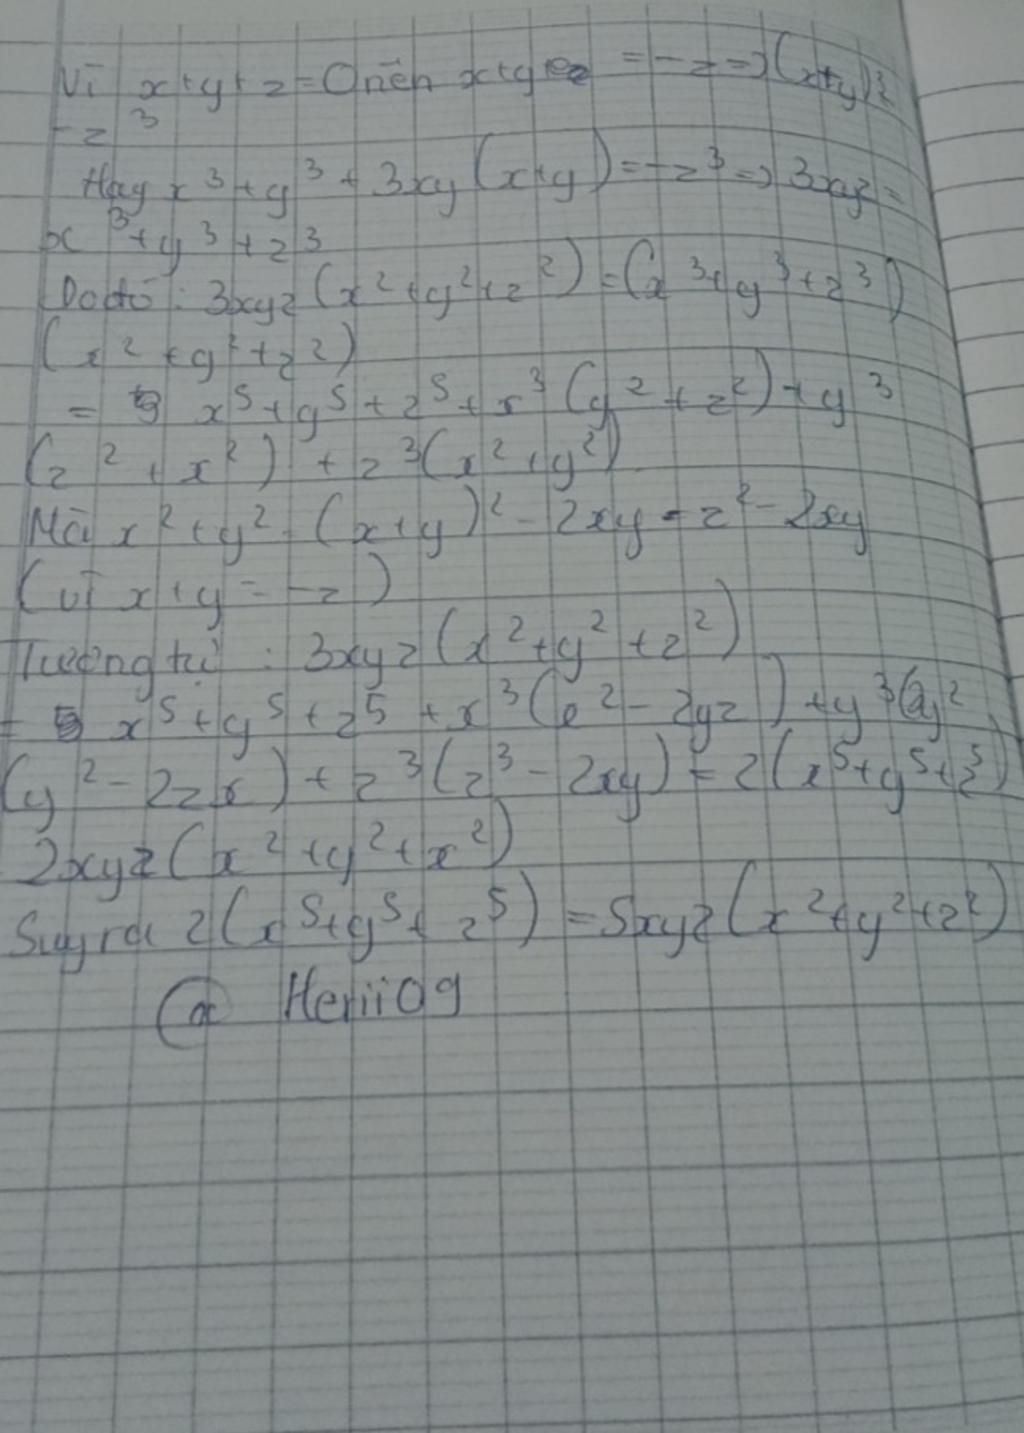 Vì x+y+z=0 nên x+y = -z => (x+y)³=
-z³
Hay x³+y³+3xy(x+y)=-z³=>3xyz=
x³+y³+z³
Do đó: 3xyz(x²+y²+z²)=(x³+y³+z³)
(x²+y²+z²)
= x⁵+y⁵+z⁵+x³(y²+z²)+y³
(z²+x²)+z³(x²+y²)
Mà x²+y²=(x+y)²-2xy=z²-2xy
(vì x+y=-z)
Tương tự: 3xyz(x²+y²+z²)
= x⁵+y⁵+z⁵+x³(x²-2yz)+y³
(y²-2zx)+z³(z³-2xy)=2(x⁵+y⁵+z⁵)
2xyz(x²+y²+x²)
Suy ra 2(x⁵+y⁵+z⁵)=5xyz(x²+y²+z²)
@ Heriii09